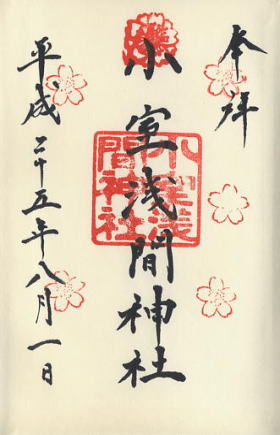 奉拝
小室浅間神社
平成二十五年八月一日
小室浅
間神社